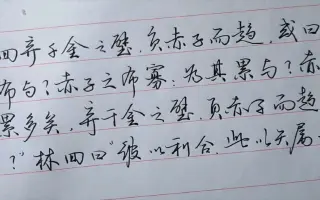 回弃千金之璧，负赤子而趋，或曰
布与？赤子之布寡；为其累与？赤
累多矣，弃千金之璧，负赤子而趋
？”林回曰“彼以利合，此以天属